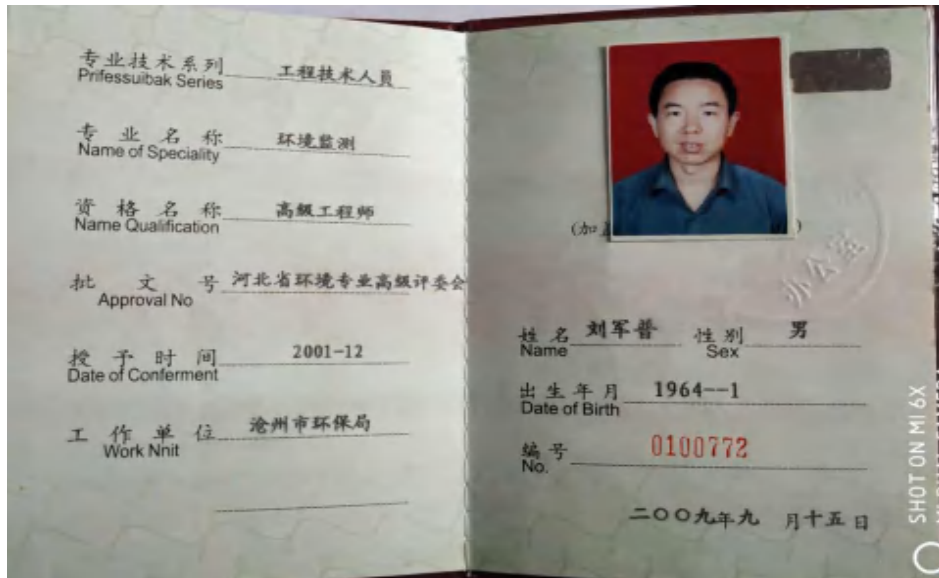 专业技术系列 工程技术人员
Prifessuibak Series
专业名称 环境监测
Name of Speciality
资格名称 高级工程师
Name Qualification
批文号 河北省环境专业高级评委会
Approval No
授予时间 2001-12
Date of Conferment
工作单位 沧州市环保局
Work Nnit
(加
)
办公室
姓名 刘军普 性别 男
Name Sex
出生年月 1964--1
Date of Birth
编号 0100772
No.
二〇〇九年九 月十五日
SHOT ON MI 6X